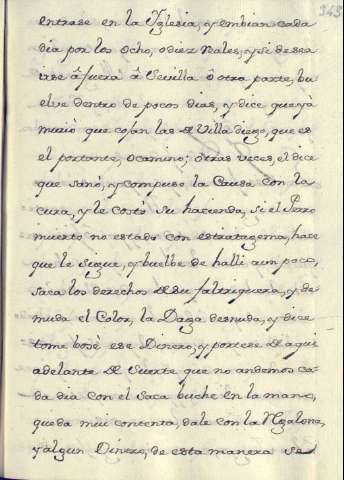 343
entrase en la Yglesia, y embian cada
dia por los Ocho, o diez Rales, y si desea
irse â fuera â Sevilla ô otra parte, bu
elve dentro de pocos dias, y dice que yà
muriò que cojan las de Villa diego, que es
el portante, o camino; otras veces, el dice
que sanò, y compuso la Causa con la
cura, y le costò su hacienda, si el Perro
muerto no estado con estratagema, hace
que le sigue, y buelbe de halli a un poco,
saca los derechos de su faltriguera, y de
muda el Color, la Daga desnuda, y dice
tome bosè ese Dinero, y portese de aqui
adelante de Suerte que no andemos ca
da dia con el saca buche en la mano,
queda mui contenta, dale con la
y algun Dinero, de esta manera se